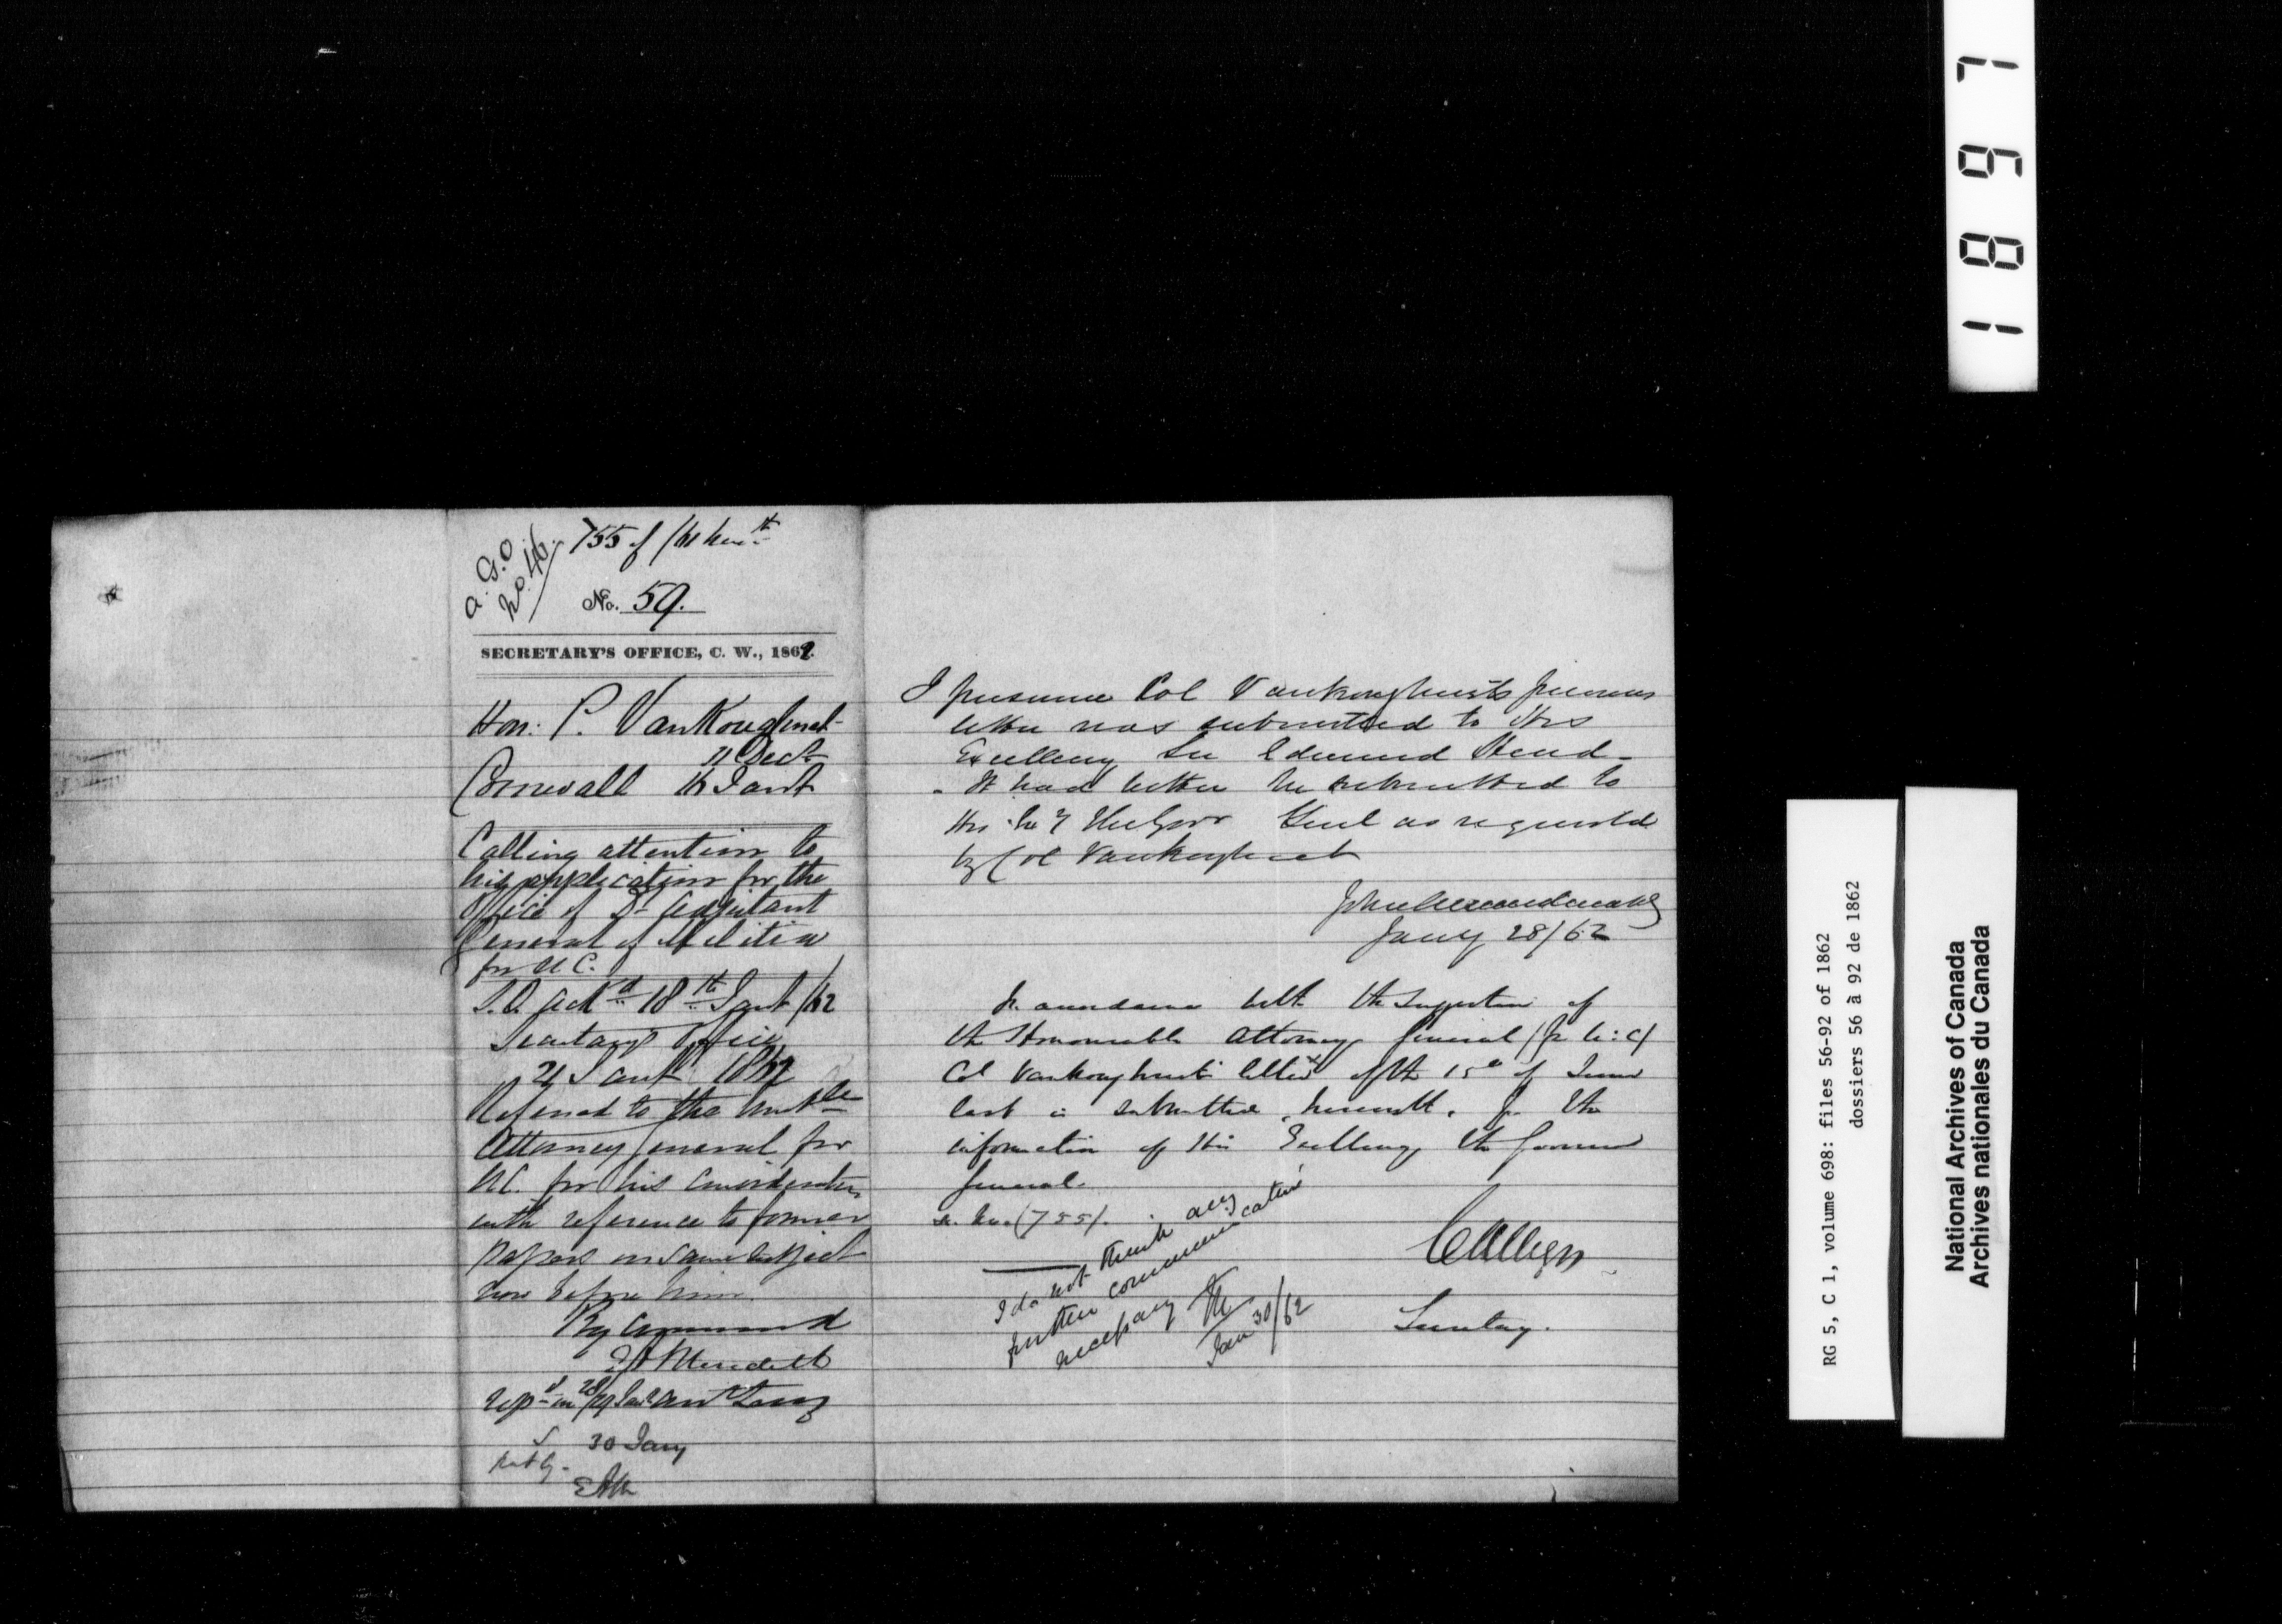 A. G. O.
No. 46.
755 of /61 herewth
No. 59.
SECRETARY'S OFFICE, C. W., 1862.
Hon: P. VanKoughnet
Cornwall 16 Jany
Calling attention to
his application for the
Office of Dy Adjutant
General of Militia
for U C.
Ackd 18th Jany /62
Secretary's Office
21 Jany 1862
Referred to the Honble
Attorney General for
U.C. for his consideration
with reference to former
papers on same subject
now before him.
By Command
E A Meredith
30 Jany
EAM
I presume Col Vankoughnet's previous
letter was submitted to His
Excellency Sir Edmund Head -
- It had better be submitted to
His Ex'y The Gov Genl as requested
by Col Vankoughnet
John A Macdonald
Jany 28/62
In accordance with the suggestion of
the Honourable Attorney General (for U: C)
Col Vankoughnet's letter of the 15th of June
last is submitted, herewith, for the
information of His Excellency the Governor
General.
(755).
C Alleyn
Secretary.
I do not think any
further communication
necessary M
Jan 30/62
1897
RG 5, C 1, volume 698: files 56-92 of 1862
dossiers 56 à 92 de 1862
National Archives of Canada
Archives nationales du Canada